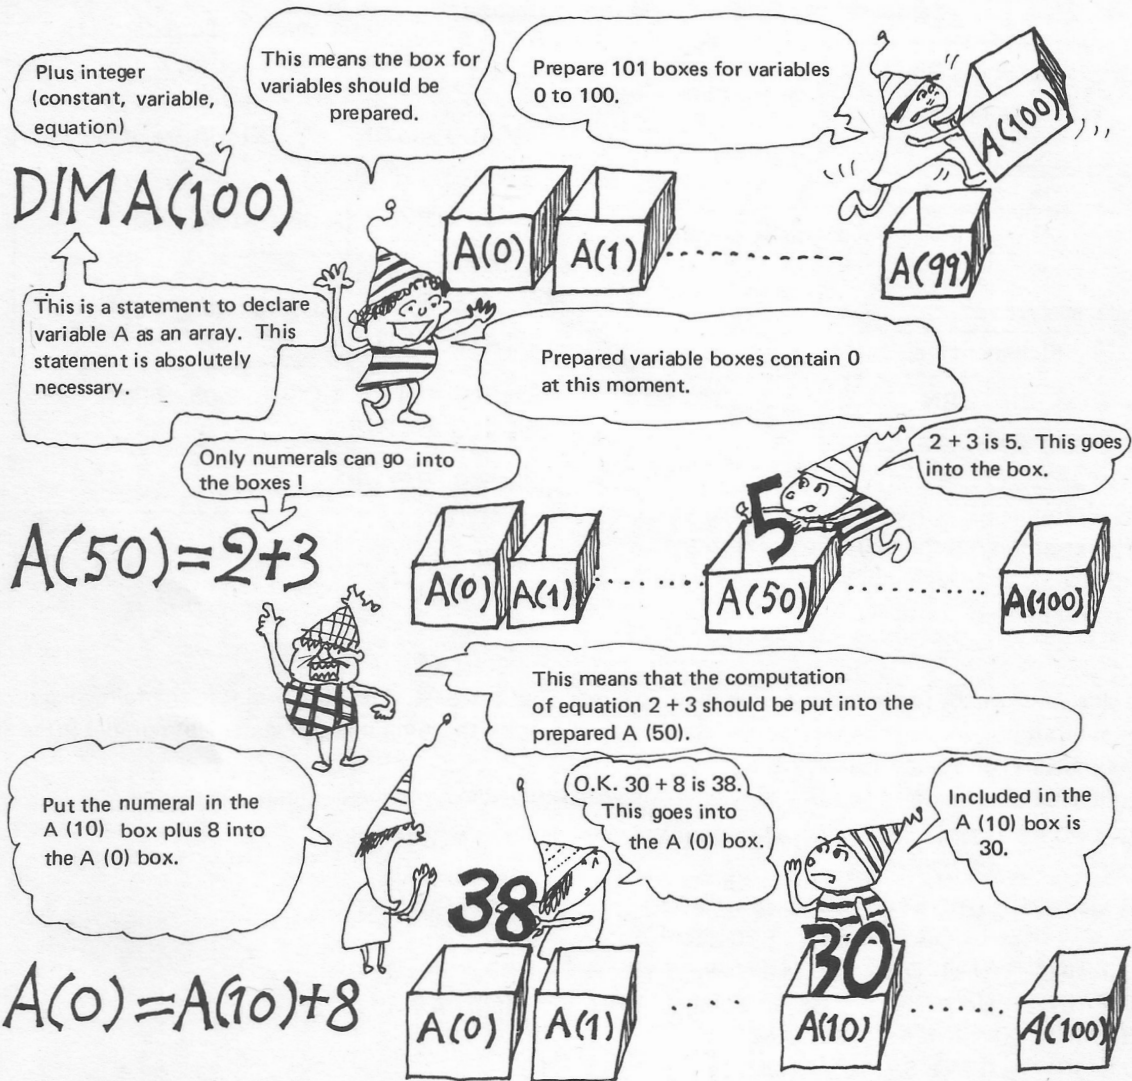 Plus integer
(constant, variable,
equation)
This means the box for
variables should be
prepared.
Prepare 101 boxes for variables
0 to 100.
A(100)
DIMA(100)
A(0)
A(1)
A(99)
This is a statement to declare
variable A as an array. This
statement is absolutely
necessary.
Prepared variable boxes contain 0
at this moment.
Only numerals can go into
the boxes !
2 + 3 is 5. This goes
into the box.
5
A(50)=2+3
A(0)
A(1)
A(50)
A(100)
This means that the computation
of equation 2 + 3 should be put into the
prepared A (50).
Put the numeral in the
A (10) box plus 8 into
the A (0) box.
O.K. 30 + 8 is 38.
This goes into
the A (0) box.
Included in the
A (10) box is
30.
38
30
A(0)=A(10)+8
A(0)
A(1)
A(10)
A(100)